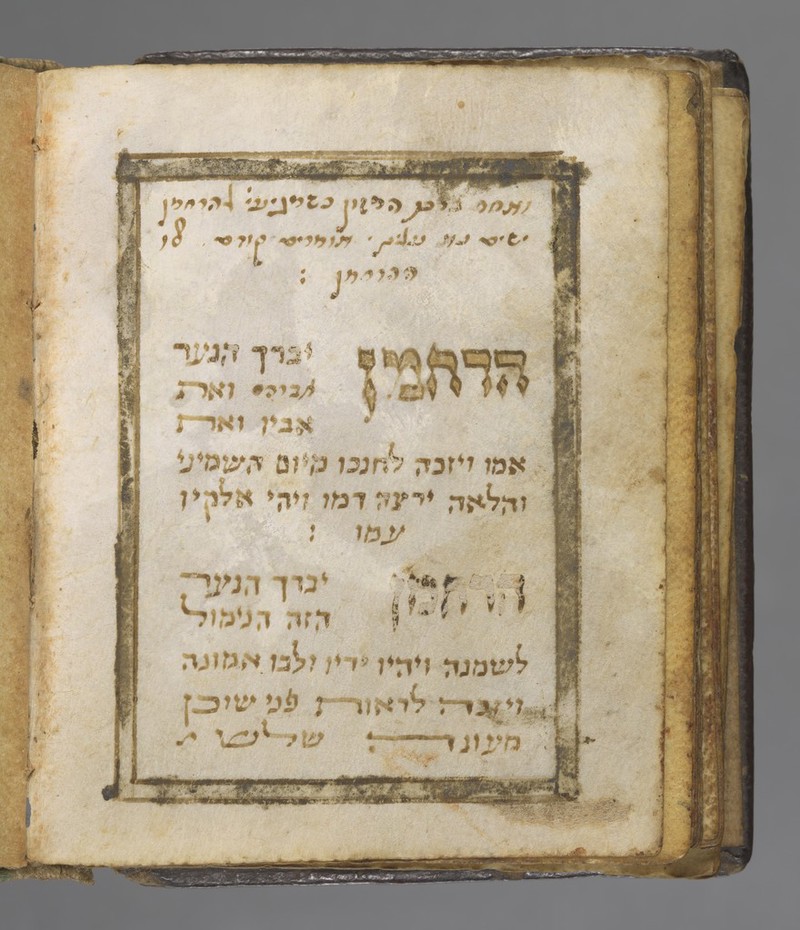 ואחר ברכת המזון כשמגיעי׳ להרחמן
שים
הרחמן :
הרחמן יברך הנער
אביהם ואת
אביו ואת
אמו ויזכה לחנכו מיום השמיני
והלאה ירצה דמו ויהי אלקיו
עמו :
הרחמן יברך הנער
הזה הנימול
לשמנה ויהיו ידיו ולבו אמונה
ויזכה לראות פני שוכן
מעונה שלש